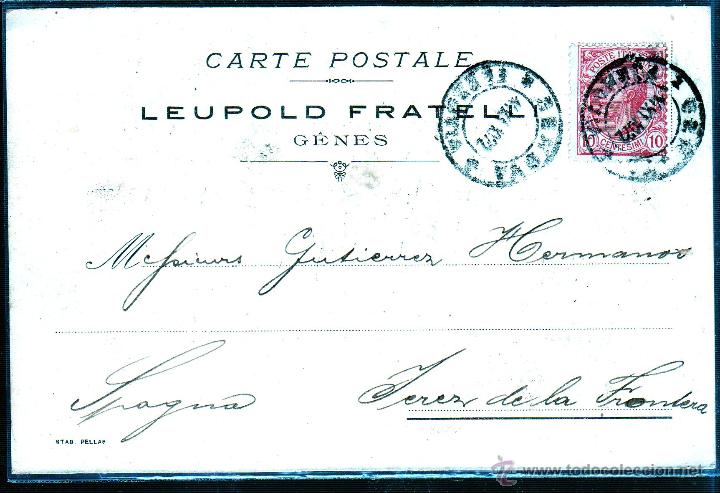 CARTE POSTALE
LEUPOLD FRATELLI
GÊNES
POSTE ITAL
10 CENTESIMI 10
Messieurs Gutierrez Hermanos
Spagna Jerez de la Frontera
STAB. PELLAS
todocoleccion.net